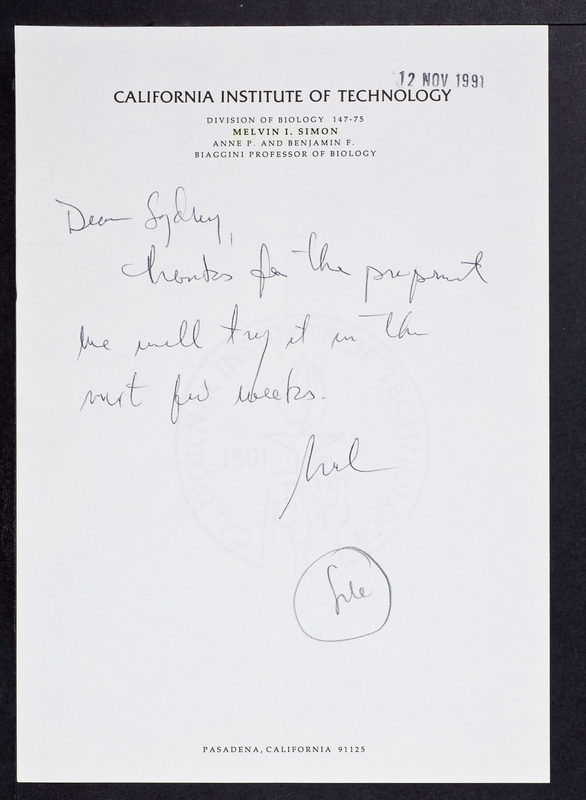 12 NOV 1991
CALIFORNIA INSTITUTE OF TECHNOLOGY
DIVISION OF BIOLOGY 147-75
MELVIN I. SIMON
ANNE P. AND BENJAMIN F.
BIAGGINI PROFESSOR OF BIOLOGY
Dear Sydney,
thanks for the preprint
we will try it in the
next few weeks.
Mel
File
PASADENA, CALIFORNIA 91125